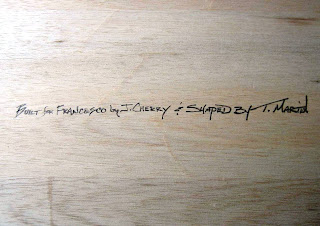 Built for Francesco by J. Cherry & Shaped by T. Martin